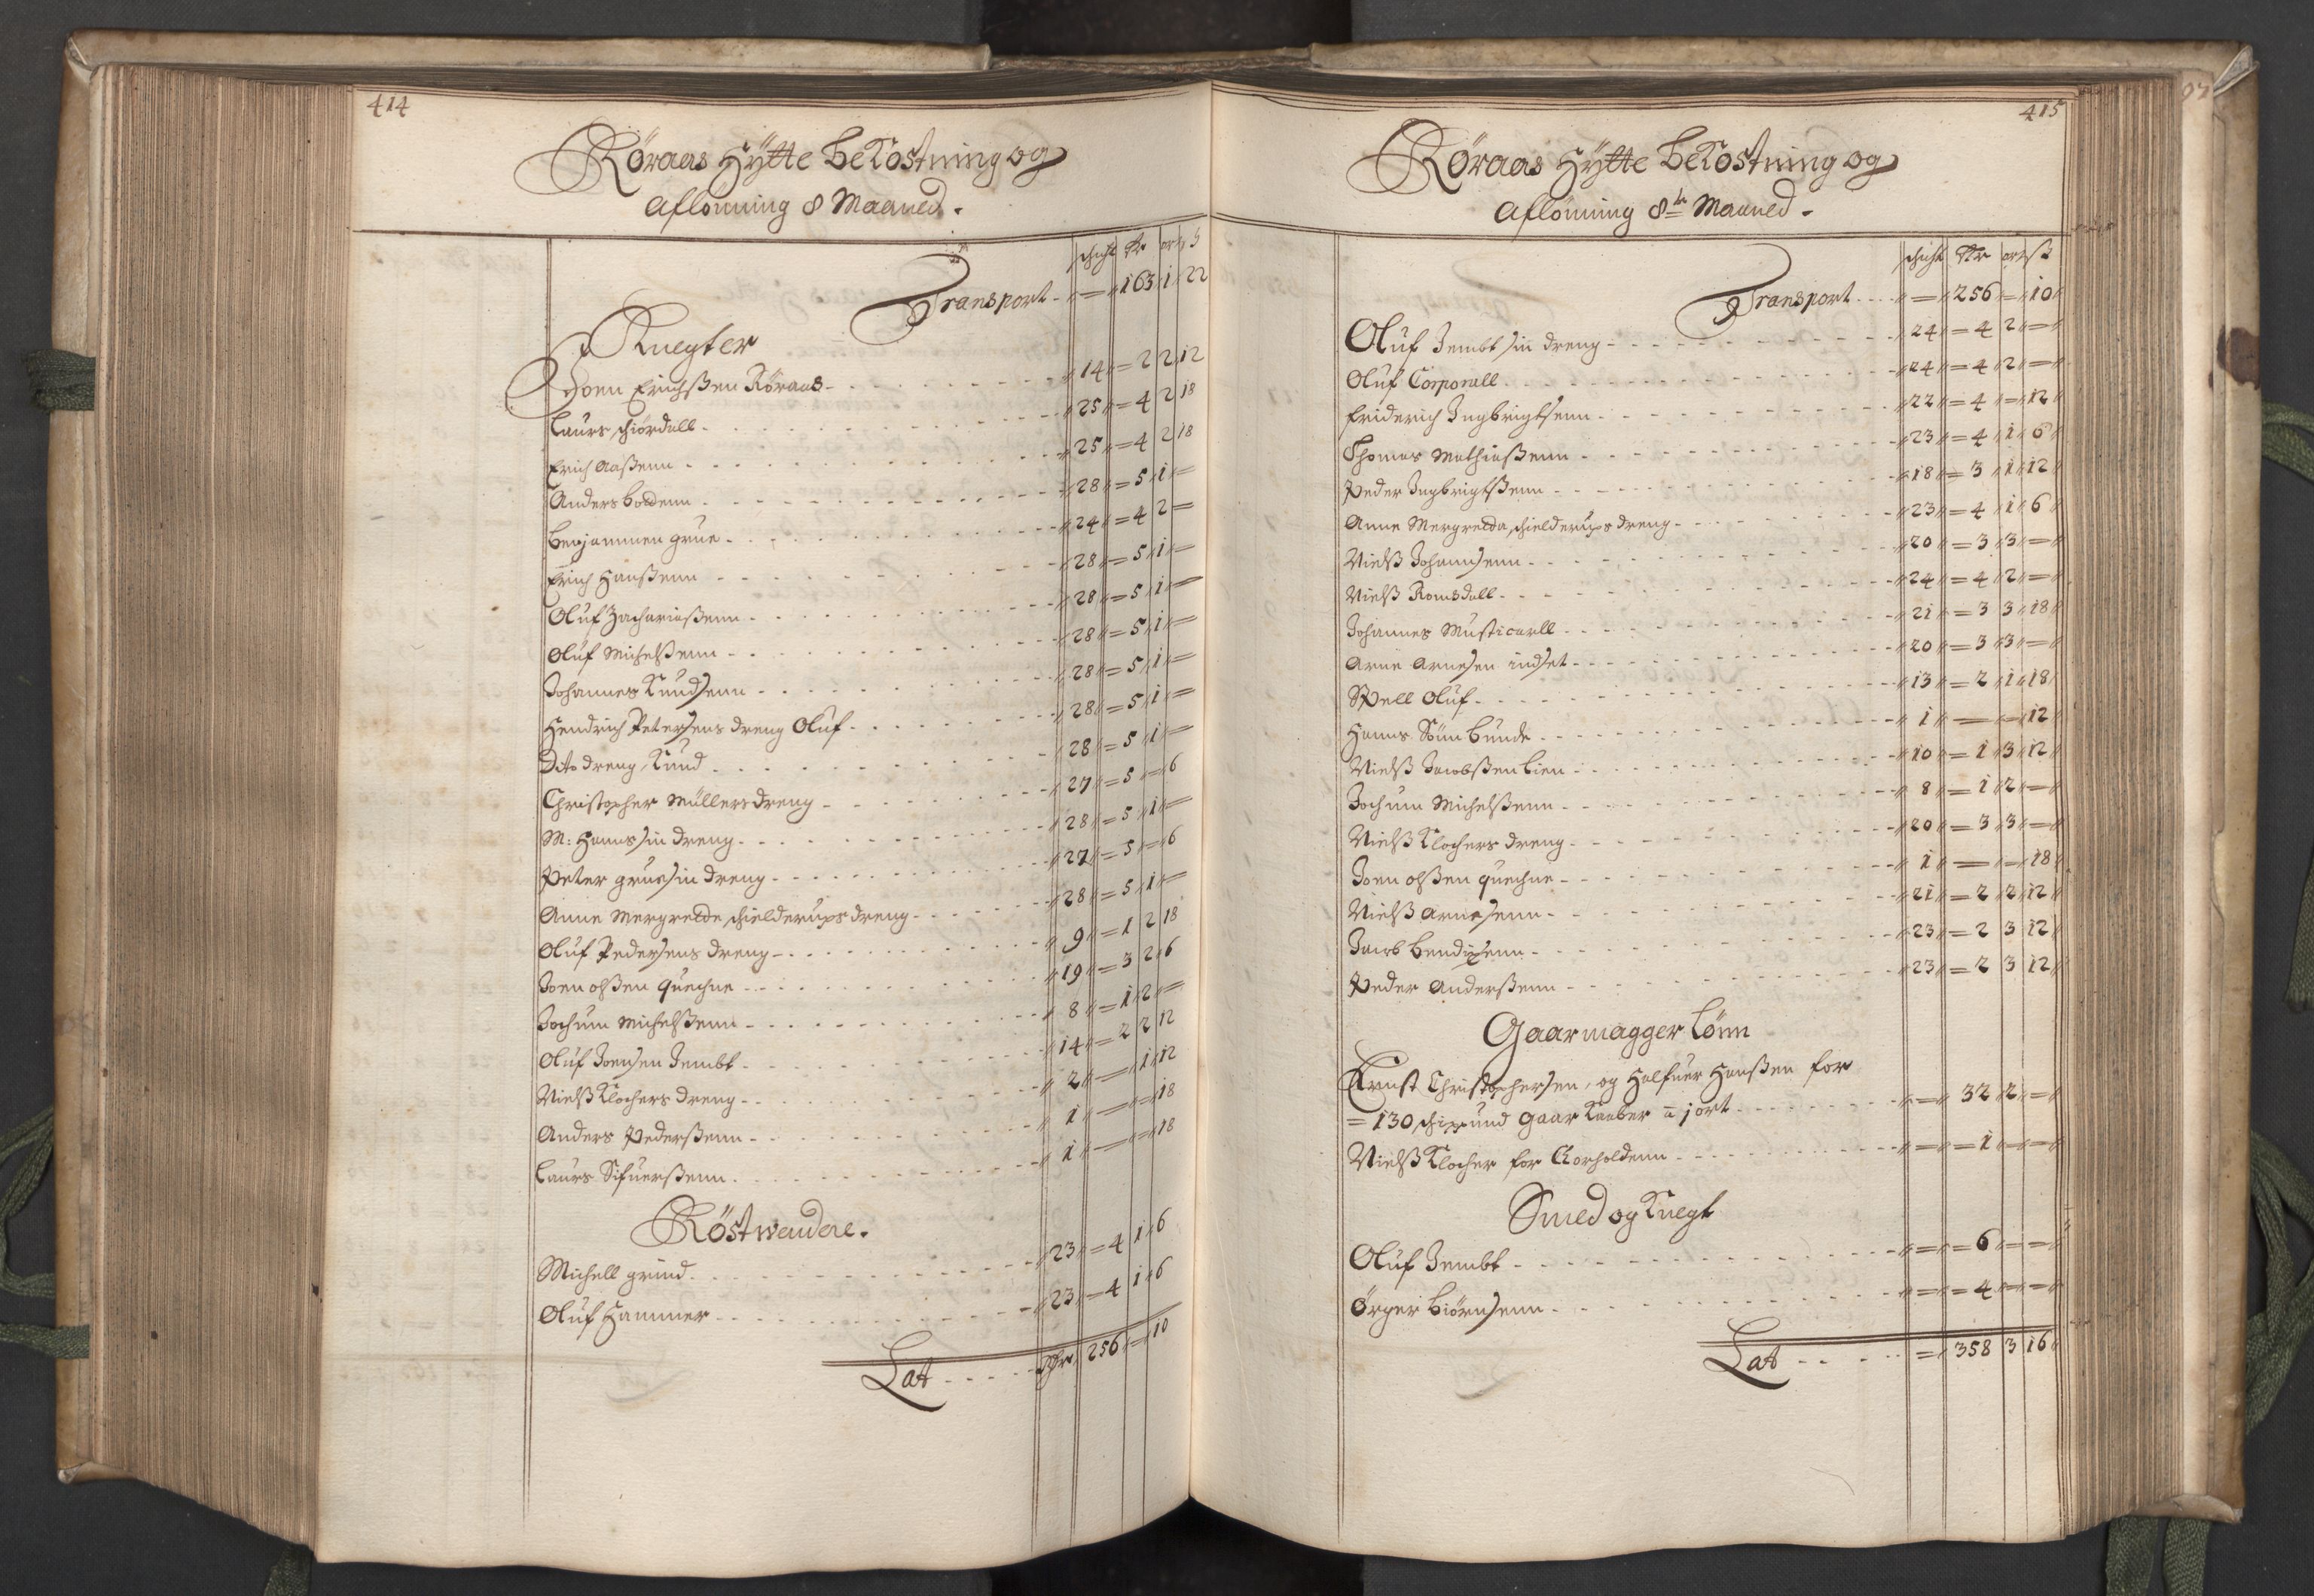 414
Röraas Hÿtte beKostning og
Aflönning 8 Maaned.
schicht Rr ort ß
Transport - = 163 1 22
Knegter
Joen Erichßen Röraas - 14 = 2 2 12
Laurs schiördall - 25 = 4 2 18
Erich Aaßenn - 25 = 4 2 18
Anders bordenn - 28 = 5 1 =
Benjammen grue - 24 = 4 2 =
Erich Hanßenn - 28 = 5 1 =
Oluf Zachariaßenn - 28 = 5 1 =
Oluf Michelßenn - 28 = 5 1 =
Johannes Knudsenn - 28 = 5 1 =
Hendrich Petersens dreng Oluf - 28 = 5 1 =
Dito dreng, Knud - 28 = 5 1 =
Christopher Müllers dreng - 27 = 5 = 6
M: Hanns sin dreng - 28 = 5 1 =
Peter grue sin dreng - 27 = 5 = 6
Anne Mergretde schielderups dreng - 28 = 5 1 =
Oluf Pedersens dreng - 9 = 1 2 18
Joen olßen quechne - 19 = 3 2 6
Jochum Michelßenn - 8 = 1 2 =
Oluf Joensen Jembt - 14 = 2 2 12
Nielß Klochers dreng - 2 = 1 12
Anders Pederßenn - 1 = = 18
Laurs Sifuerßenn - 1 = = 18
Röstwendere.
Michell grind - 23 = 4 1 6
Oluf Hammer - 23 = 4 1 6
Lat - Rr 256 = 10
415
Röraas Hÿtte beKostning og
Aflönning 8de Maaned -
schicht Rr ort ß
Transport - = 256 = 10
Oluf Jembt sin dreng - 24 = 4 2 =
Oluf Corporall - 24 = 4 2 =
friderich Ingbrigtsenn - 22 = 4 = 12
Thomas Mathiaßenn - 23 = 4 1 6
Peder Ingbrigtßenn - 18 = 3 1 12
Anne Mergretda schielderups dreng - 23 = 4 1 6
Nielß Johannsenn - 20 = 3 3 =
Nielß Romsdall - 24 = 4 2 =
Johannes Musticarll - 21 = 3 3 18
Arne Arnesen indset - 20 = 3 3 =
Spell Oluf - 13 = 2 1 18
Hanns Sönn bunde - 1 = = 12
Nielß Jacobßen Lien - 10 = 1 3 12
Jochum Michelßenn - 8 = 1 2 =
Nielß Klochers dreng - 20 = 3 3 =
Joen olßen quechne - 1 = = 18
Nielß Arnesenn - 21 = 2 2 12
Jacob bendixenn - 23 = 2 3 12
Peder Anderßenn - 23 = 2 3 12
Gaarmagger Lönn
Ernst Christophersen, og Halfuer Hanßen for
= 130 schippund gaar Kaaber a j ort - = 32 2 =
Nielß Klocher for - = 1 = =
Smed og Knegt
Oluf Jembt - = = 6 = =
Örger biörnsenn - = = 4 = =
Lat - = 358 3 16